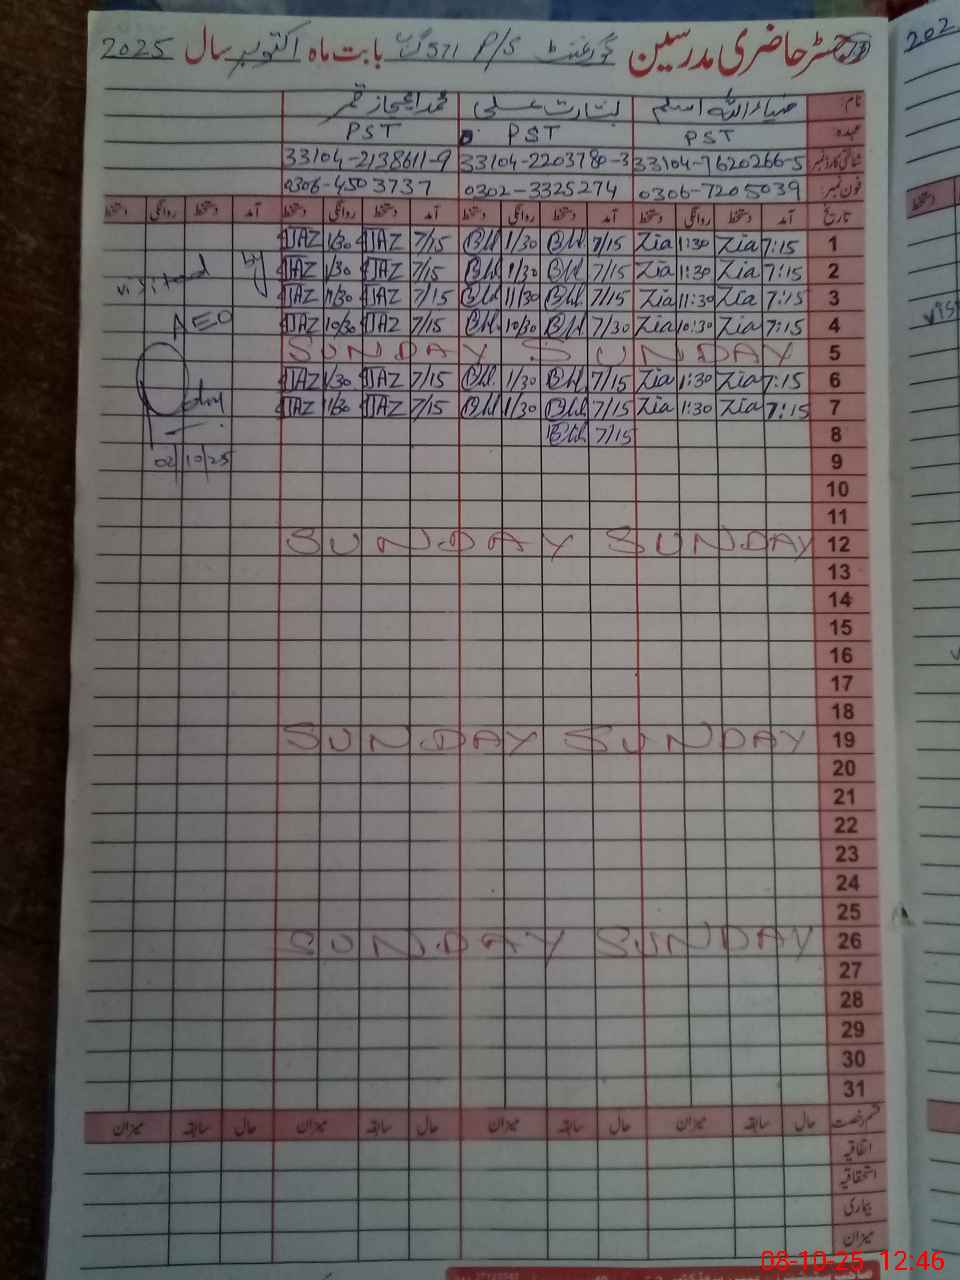 رجسٹر حاضری مدرسین گورنمنٹ P/S 571 گ ب بابت ماہ اکتوبر سال 2025
نام: ضیاء اللہ اسلم بشارت علی محمد اعجاز قمر
عہدہ PST PST PST
شناختی کارڈ نمبر 33104-7620266-5 33104-2203780-3 33104-2138611-9
فون نمبر: 0306-7205039 0302-3325274 0306-4503737
تاریخ آمد دستخط روانگی دستخط آمد دستخط روانگی دستخط آمد دستخط روانگی دستخط آمد دستخط روانگی دستخط
1 7:15 Zia 1:30 Zia 7/15 1/30 7/15 IJAZ 1/30 IJAZ
2 7:15 Zia 1:30 Zia 7/15 1/30 7/15 IJAZ 1/30 IJAZ visited by
3 7:15 Zia 11:30 Zia 7/15 11/30 7/15 IJAZ 11/30 IJAZ
4 7:15 Zia 10:30 Zia 7/30 10/30 7/15 IJAZ 10/30 IJAZ AEO
5 SUNDAY SUNDAY
6 7:15 Zia 1:30 Zia 7/15 1/30 7/15 IJAZ 1/30 IJAZ
7 7:15 Zia 1:30 Zia 7/15 1/30 7/15 IJAZ 1/30 IJAZ
8 7/15
9 02/10/25
10
11
12 SUNDAY SUNDAY
13
14
15
16
17
18
19 SUNDAY SUNDAY
20
21
22
23
24
25
26 SUNDAY SUNDAY
27
28
29
30
31
قسم رخصت حال سابقہ میزان حال سابقہ میزان حال سابقہ میزان حال سابقہ میزان
اتفاقیہ
استحقاقیہ
بیماری
میزان
202
08-10-25 12:46